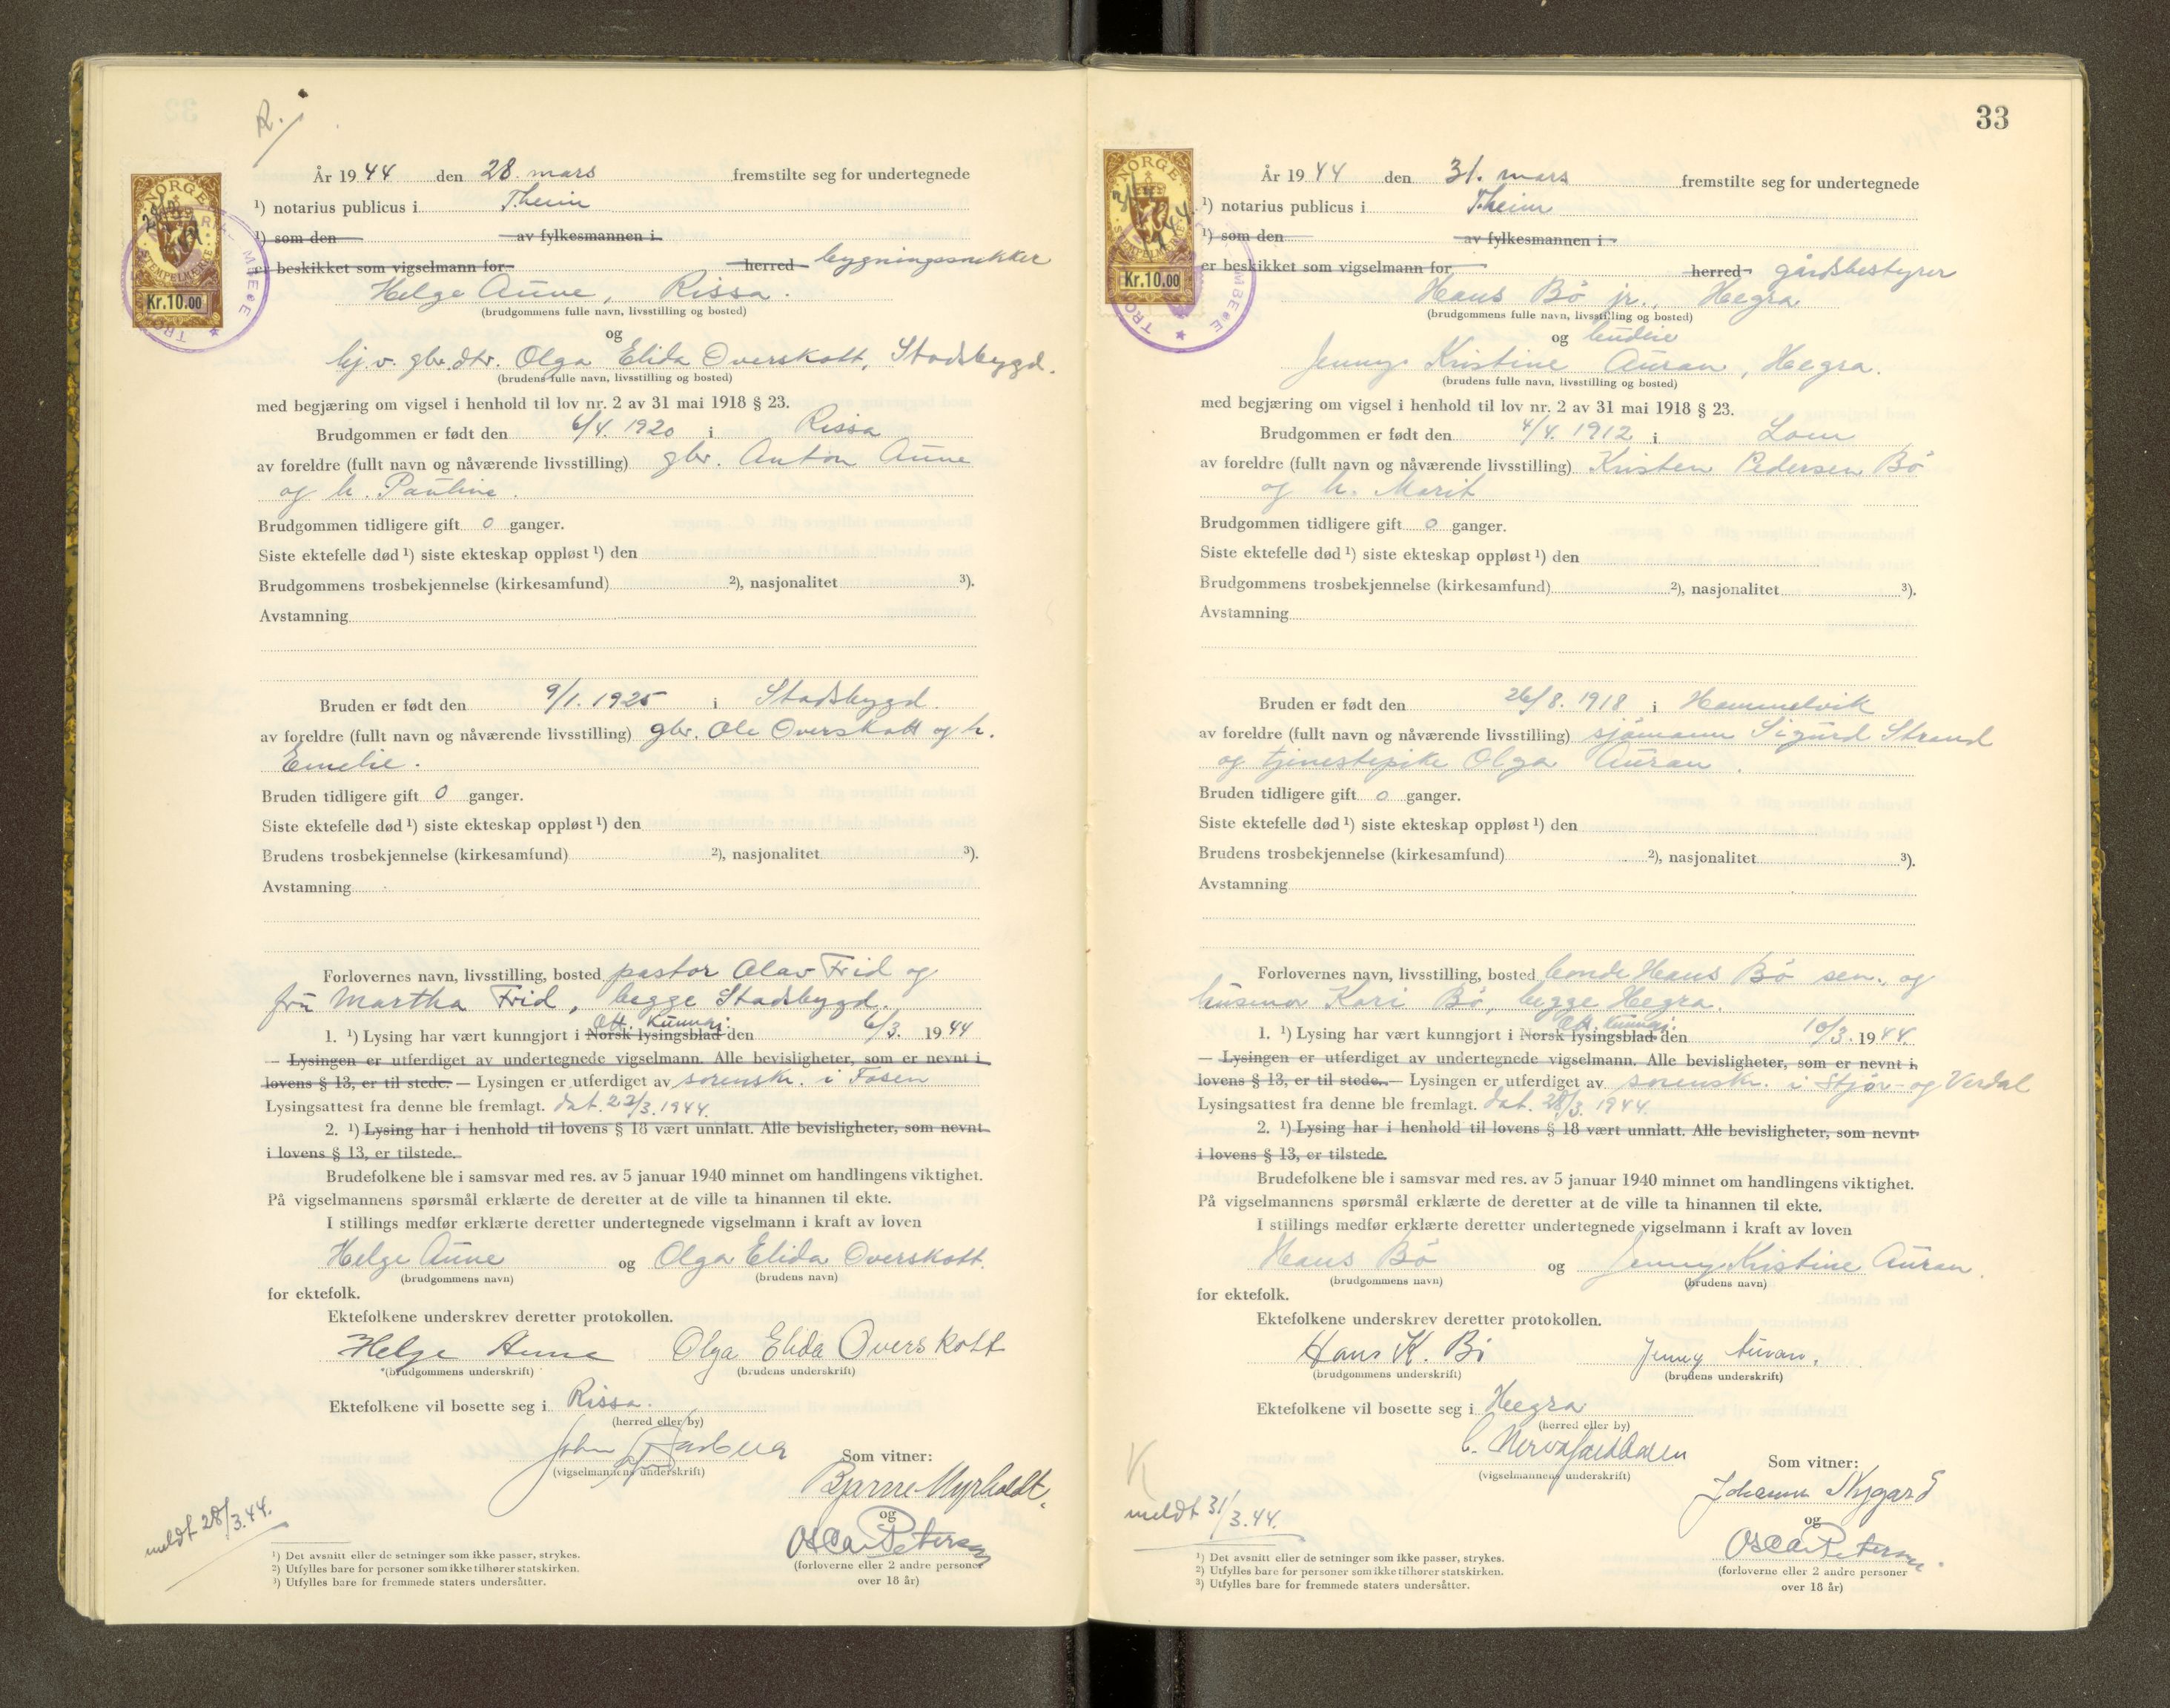 R.
År 1944 den 28. mars fremstilte seg for undertegnede
¹) notarius publicus i T.heim
¹) som den av fylkesmannen i
er beskikket som vigselmann for herred bygningssnekker
Helge Aune, Rissa.
(brudgommens fulle navn, livsstilling og bosted)
og
hj.v. gbr.dtr. Olga Elida Overskott, Stadsbygd.
(brudens fulle navn, livsstilling og bosted)
med begjæring om vigsel i henhold til lov nr. 2 av 31 mai 1918 § 23.
Brudgommen er født den 6/4. 1920 i Rissa
av foreldre (fullt navn og nåværende livsstilling) gbr. Anton Aune
og h. Pauline.
Brudgommen tidligere gift 0 ganger.
Siste ektefelle død ¹) siste ekteskap oppløst ¹) den
Brudgommens trosbekjennelse (kirkesamfund) ²), nasjonalitet ³).
Avstamning
Bruden er født den 9/1. 1925 i Stadsbygd.
av foreldre (fullt navn og nåværende livsstilling) gbr. Ole Overskott og h.
Emelie.
Bruden tidligere gift 0 ganger.
Siste ektefelle død ¹) siste ekteskap oppløst ¹) den
Brudens trosbekjennelse (kirkesamfund) ²), nasjonalitet ³).
Avstamning
Forlovernes navn, livsstilling, bosted pastor Olav Frid og
fru Martha Frid, begge Stadsbygd.
Off. kunngj.
1. ¹) Lysing har vært kunngjort i Norsk lysingsblad den 6/3. 1944
— Lysingen er utferdiget av undertegnede vigselmann. Alle bevisligheter, som er nevnt i
lovens § 13, er til stede. — Lysingen er utferdiget av sorenskr. i Fosen
Lysingsattest fra denne ble fremlagt. dat. 22/3. 1944.
2. ¹) Lysing har i henhold til lovens § 18 vært unnlatt. Alle bevisligheter, som nevnt
i lovens § 13, er tilstede.
Brudefolkene ble i samsvar med res. av 5 januar 1940 minnet om handlingens viktighet.
På vigselmannens spørsmål erklærte de deretter at de ville ta hinannen til ekte.
I stillings medfør erklærte deretter undertegnede vigselmann i kraft av loven
Helge Aune og Olga Elida Overskott.
(brudgommens navn) (brudens navn)
for ektefolk.
Ektefolkene underskrev deretter protokollen.
Helge Aune Olga Elida Overskott
(brudgommens underskrift) (brudens underskrift)
Ektefolkene vil bosette seg i Rissa.
(herred eller by)
John
(vigselmannens underskrift)
Som vitner:
Bjarne Myrholdt.
og
Oscar Petersen
(forloverne eller 2 andre personer
over 18 år)
meldt 28/3.44.
¹) Det avsnitt eller de setninger som ikke passer, strykes.
²) Utfylles bare for personer som ikke tilhører statskirken.
³) Utfylles bare for fremmede staters undersåtter.
NORGE
STEMPELMERKE
Kr.10.00
33
År 1944 den 31. mars fremstilte seg for undertegnede
¹) notarius publicus i T.heim
¹) som den av fylkesmannen i
er beskikket som vigselmann for herred gårdsbestyrer
Hans Bö jr., Hegra
(brudgommens fulle navn, livsstilling og bosted)
og budeie
Jenny Kristine Auran, Hegra.
(brudens fulle navn, livsstilling og bosted)
med begjæring om vigsel i henhold til lov nr. 2 av 31 mai 1918 § 23.
Brudgommen er født den 4/4. 1912 i Lom
av foreldre (fullt navn og nåværende livsstilling) Kristen Pedersen Bö
og h. Marit
Brudgommen tidligere gift 0 ganger.
Siste ektefelle død ¹) siste ekteskap oppløst ¹) den
Brudgommens trosbekjennelse (kirkesamfund) ²), nasjonalitet ³).
Avstamning
Bruden er født den 26/8. 1918 i Hommelvik
av foreldre (fullt navn og nåværende livsstilling) sjömann Sigurd Strand
og tjenestepike Olga Auran.
Bruden tidligere gift 0 ganger.
Siste ektefelle død ¹) siste ekteskap oppløst ¹) den
Brudens trosbekjennelse (kirkesamfund) ²), nasjonalitet ³).
Avstamning
Forlovernes navn, livsstilling, bosted bonde Hans Bö sen. og
husmor Kari Bö, begge Hegra.
Off. kunngj.
1. ¹) Lysing har vært kunngjort i Norsk lysingsblad den 10/3. 1944.
— Lysingen er utferdiget av undertegnede vigselmann. Alle bevisligheter, som er nevnt i
lovens § 13, er til stede. — Lysingen er utferdiget av sorenskr. i Stjör- og Verdal
Lysingsattest fra denne ble fremlagt. dat. 28/3. 1944.
2. ¹) Lysing har i henhold til lovens § 18 vært unnlatt. Alle bevisligheter, som nevnt
i lovens § 13, er tilstede.
Brudefolkene ble i samsvar med res. av 5 januar 1940 minnet om handlingens viktighet.
På vigselmannens spørsmål erklærte de deretter at de ville ta hinannen til ekte.
I stillings medfør erklærte deretter undertegnede vigselmann i kraft av loven
Hans Bö og Jenny Kristine Auran.
(brudgommens navn) (brudens navn)
for ektefolk.
Ektefolkene underskrev deretter protokollen.
Hans K. Bö Jenny Auran.
(brudgommens underskrift) (brudens underskrift)
Ektefolkene vil bosette seg i Hegra
(herred eller by)
(vigselmannens underskrift)
Som vitner:
Johann Nygard
og
Oscar Petersen
(forloverne eller 2 andre personer
over 18 år)
K
meldt 31/3.44.
¹) Det avsnitt eller de setninger som ikke passer, strykes.
²) Utfylles bare for personer som ikke tilhører statskirken.
³) Utfylles bare for fremmede staters undersåtter.
NORGE
STEMPELMERKE
Kr.10.00